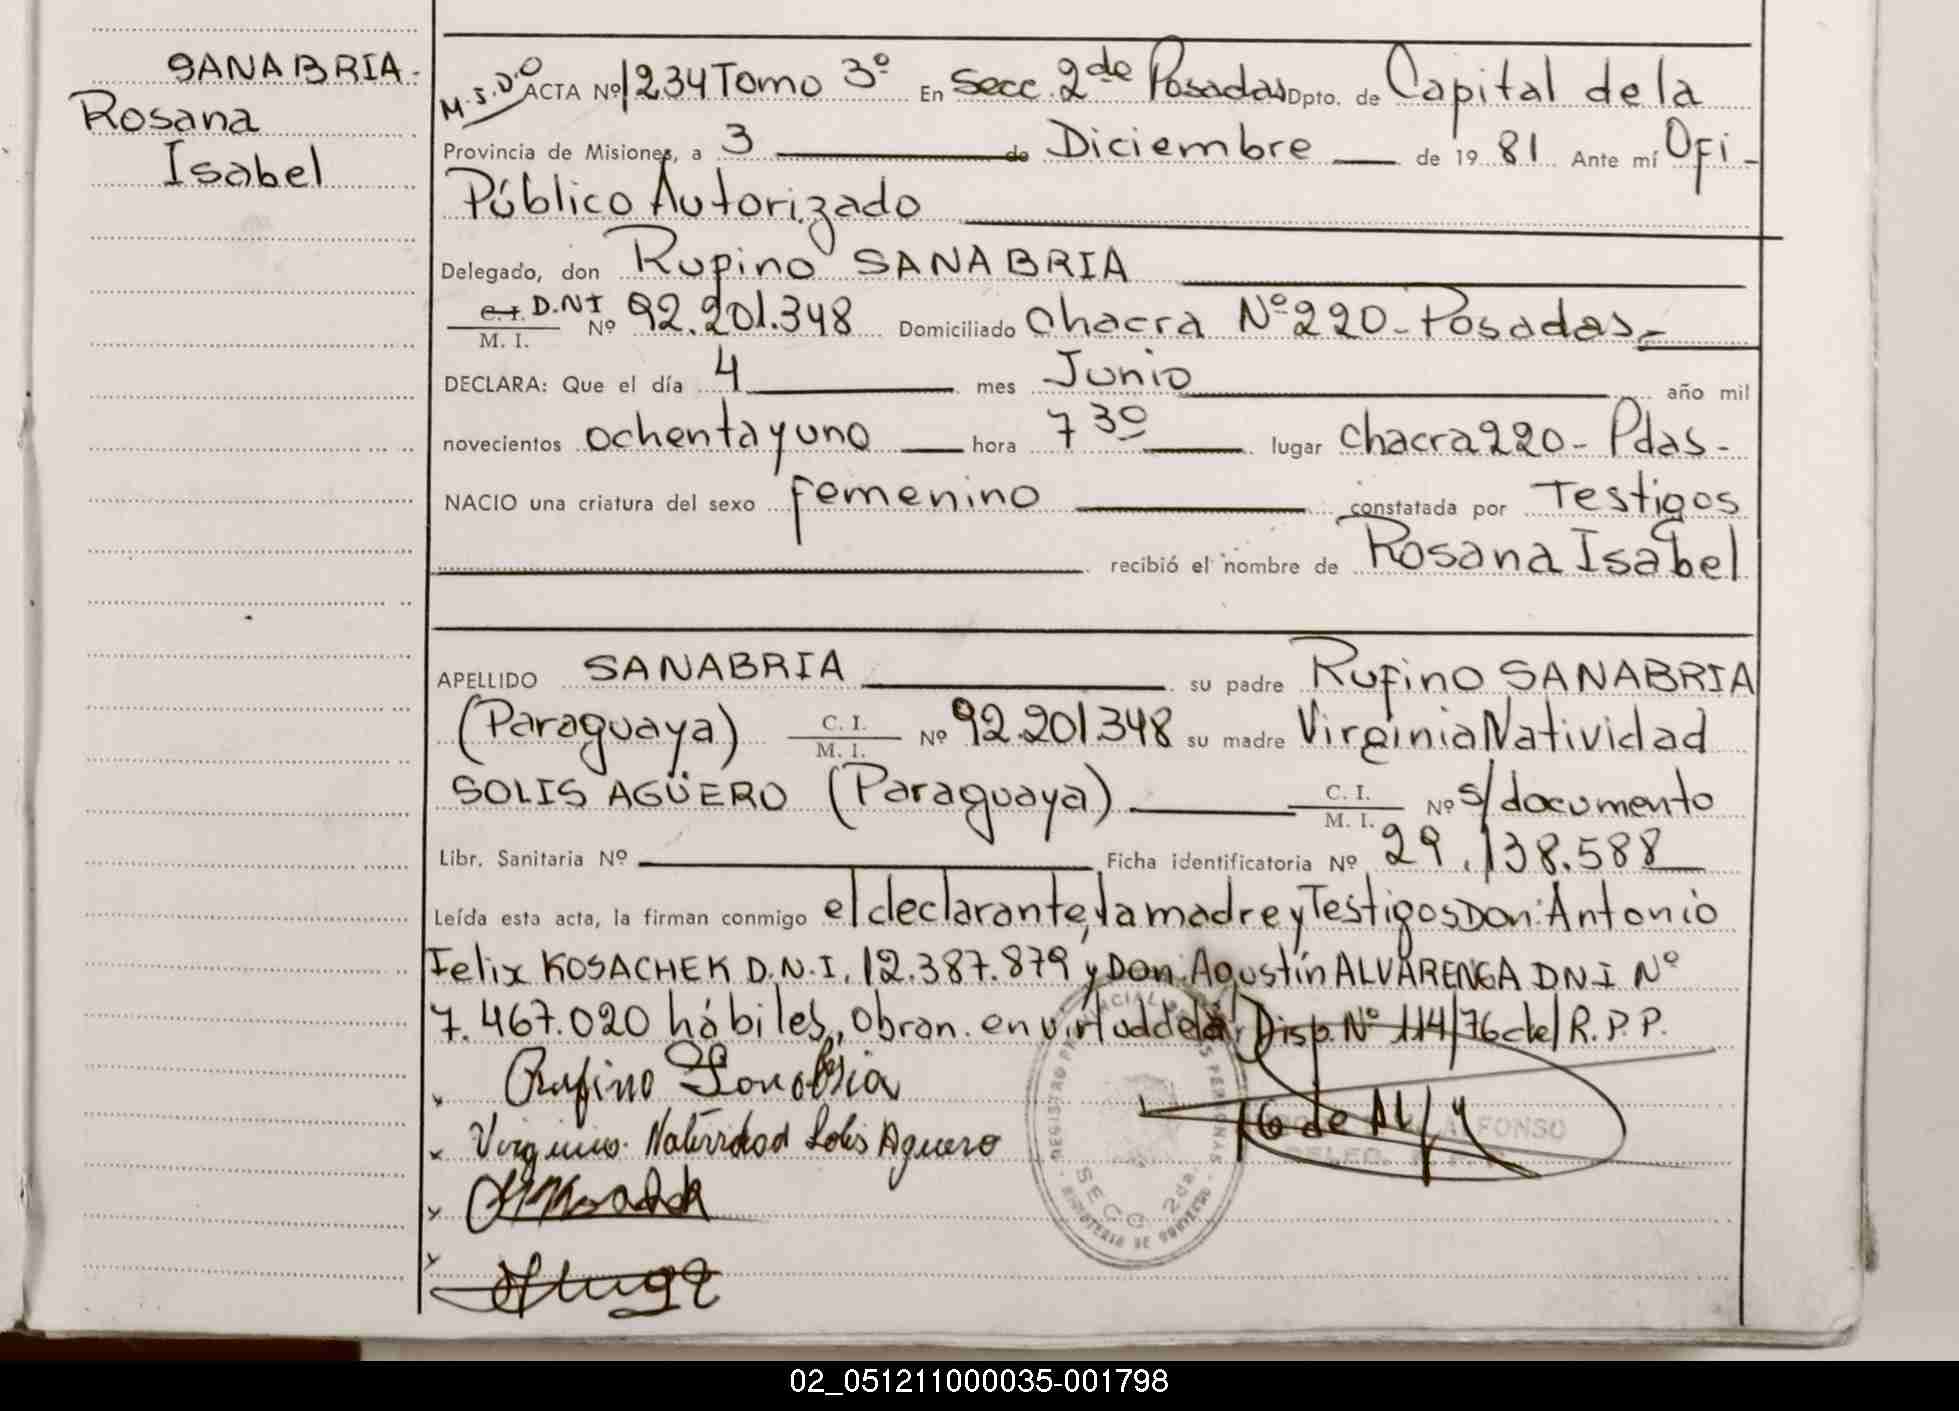 SANABRIA.
Rosana
Isabel
M.S.D.O ACTA Nº 1234 Tomo 3º En Secc. 2de Posadas Dpto. de Capital de la
Provincia de Misiones, a 3 de Diciembre de 19 81 Ante mí Ofi-
Público Autorizado
Delegado, don Rupino SANABRIA
C.I. D.NI
M. I. Nº 92.201.348 Domiciliado Chacra Nº 220-Posadas-
DECLARA: Que el día 4 mes Junio año mil
novecientos ochenta y uno hora 7 30 lugar chacra 220- Pdas-
NACIO una criatura del sexo femenino constatada por Testigos
recibió el nombre de Rosana Isabel
APELLIDO SANABRIA su padre Rufino SANABRIA
(Paraguaya) C. I. M. I. Nº 92.201.348 su madre Virginia Natividad
SOLIS AGÜERO (Paraguaya) C. I. M. I. Nº s/documento
Libr. Sanitaria Nº Ficha identificatoria Nº 29.138.588
Leída esta acta, la firman conmigo el declarante, la madre y Testigos Don: Antonio
Felix KOSACHEK D.N.I. 12.387.879 y Don: Agustín ALVARENGA DNI Nº
7.467.020 hábiles, Obran. en virtud de la Disp. Nº 114/76 del R.P.P.
Rufino Sanabria
Virginia Natividad Solis Aguero
REGISTRO PROVINCIAL DE LAS PERSONAS
SECC. 2da.
MINISTERIO DE GOBIERNO
ALFONSO
02_051211000035-001798